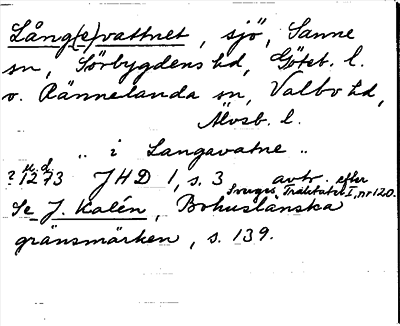 Lång(e)vattnet, sjö, Sanne
sn, Sörbygdens hd, Göteb. l.
o. Rännelanda sn, Valbo hd,
Älvsb. l.
„ i Langavatne „
u. d.
? 1273 JHD 1, s. 3 avtr. efter
Sveriges Traktater I, nr 120.
Se J. Kalén, Bohuslänska
gränsmärken, s. 139.